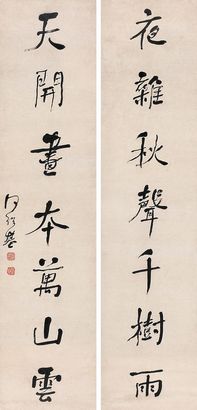 夜雜秋聲千樹雨
天開畫本萬山雲
何紹基